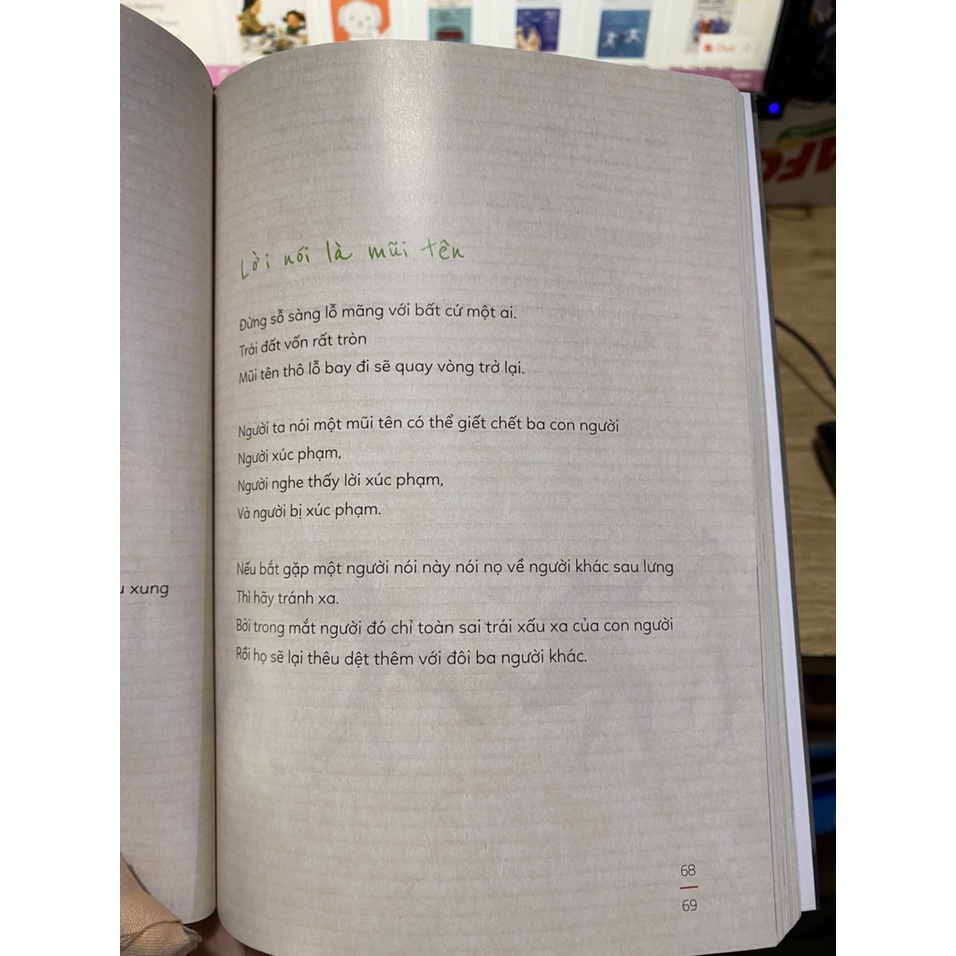 Lời nói là mũi tên
Đừng sỗ sàng lỗ mãng với bất cứ một ai.
Trái đất vốn rất tròn
Mũi tên thô lỗ bay đi sẽ quay vòng trở lại.
Người ta nói một mũi tên có thể giết chết ba con người
Người xúc phạm,
Người nghe thấy lời xúc phạm,
Và người bị xúc phạm.
Nếu bắt gặp một người nói này nói nọ về người khác sau lưng
Thì hãy tránh xa.
Bởi trong mắt người đó chỉ toàn sai trái xấu xa của con người
Rồi họ sẽ lại thêu dệt thêm với đôi ba người khác.
xung
68
69